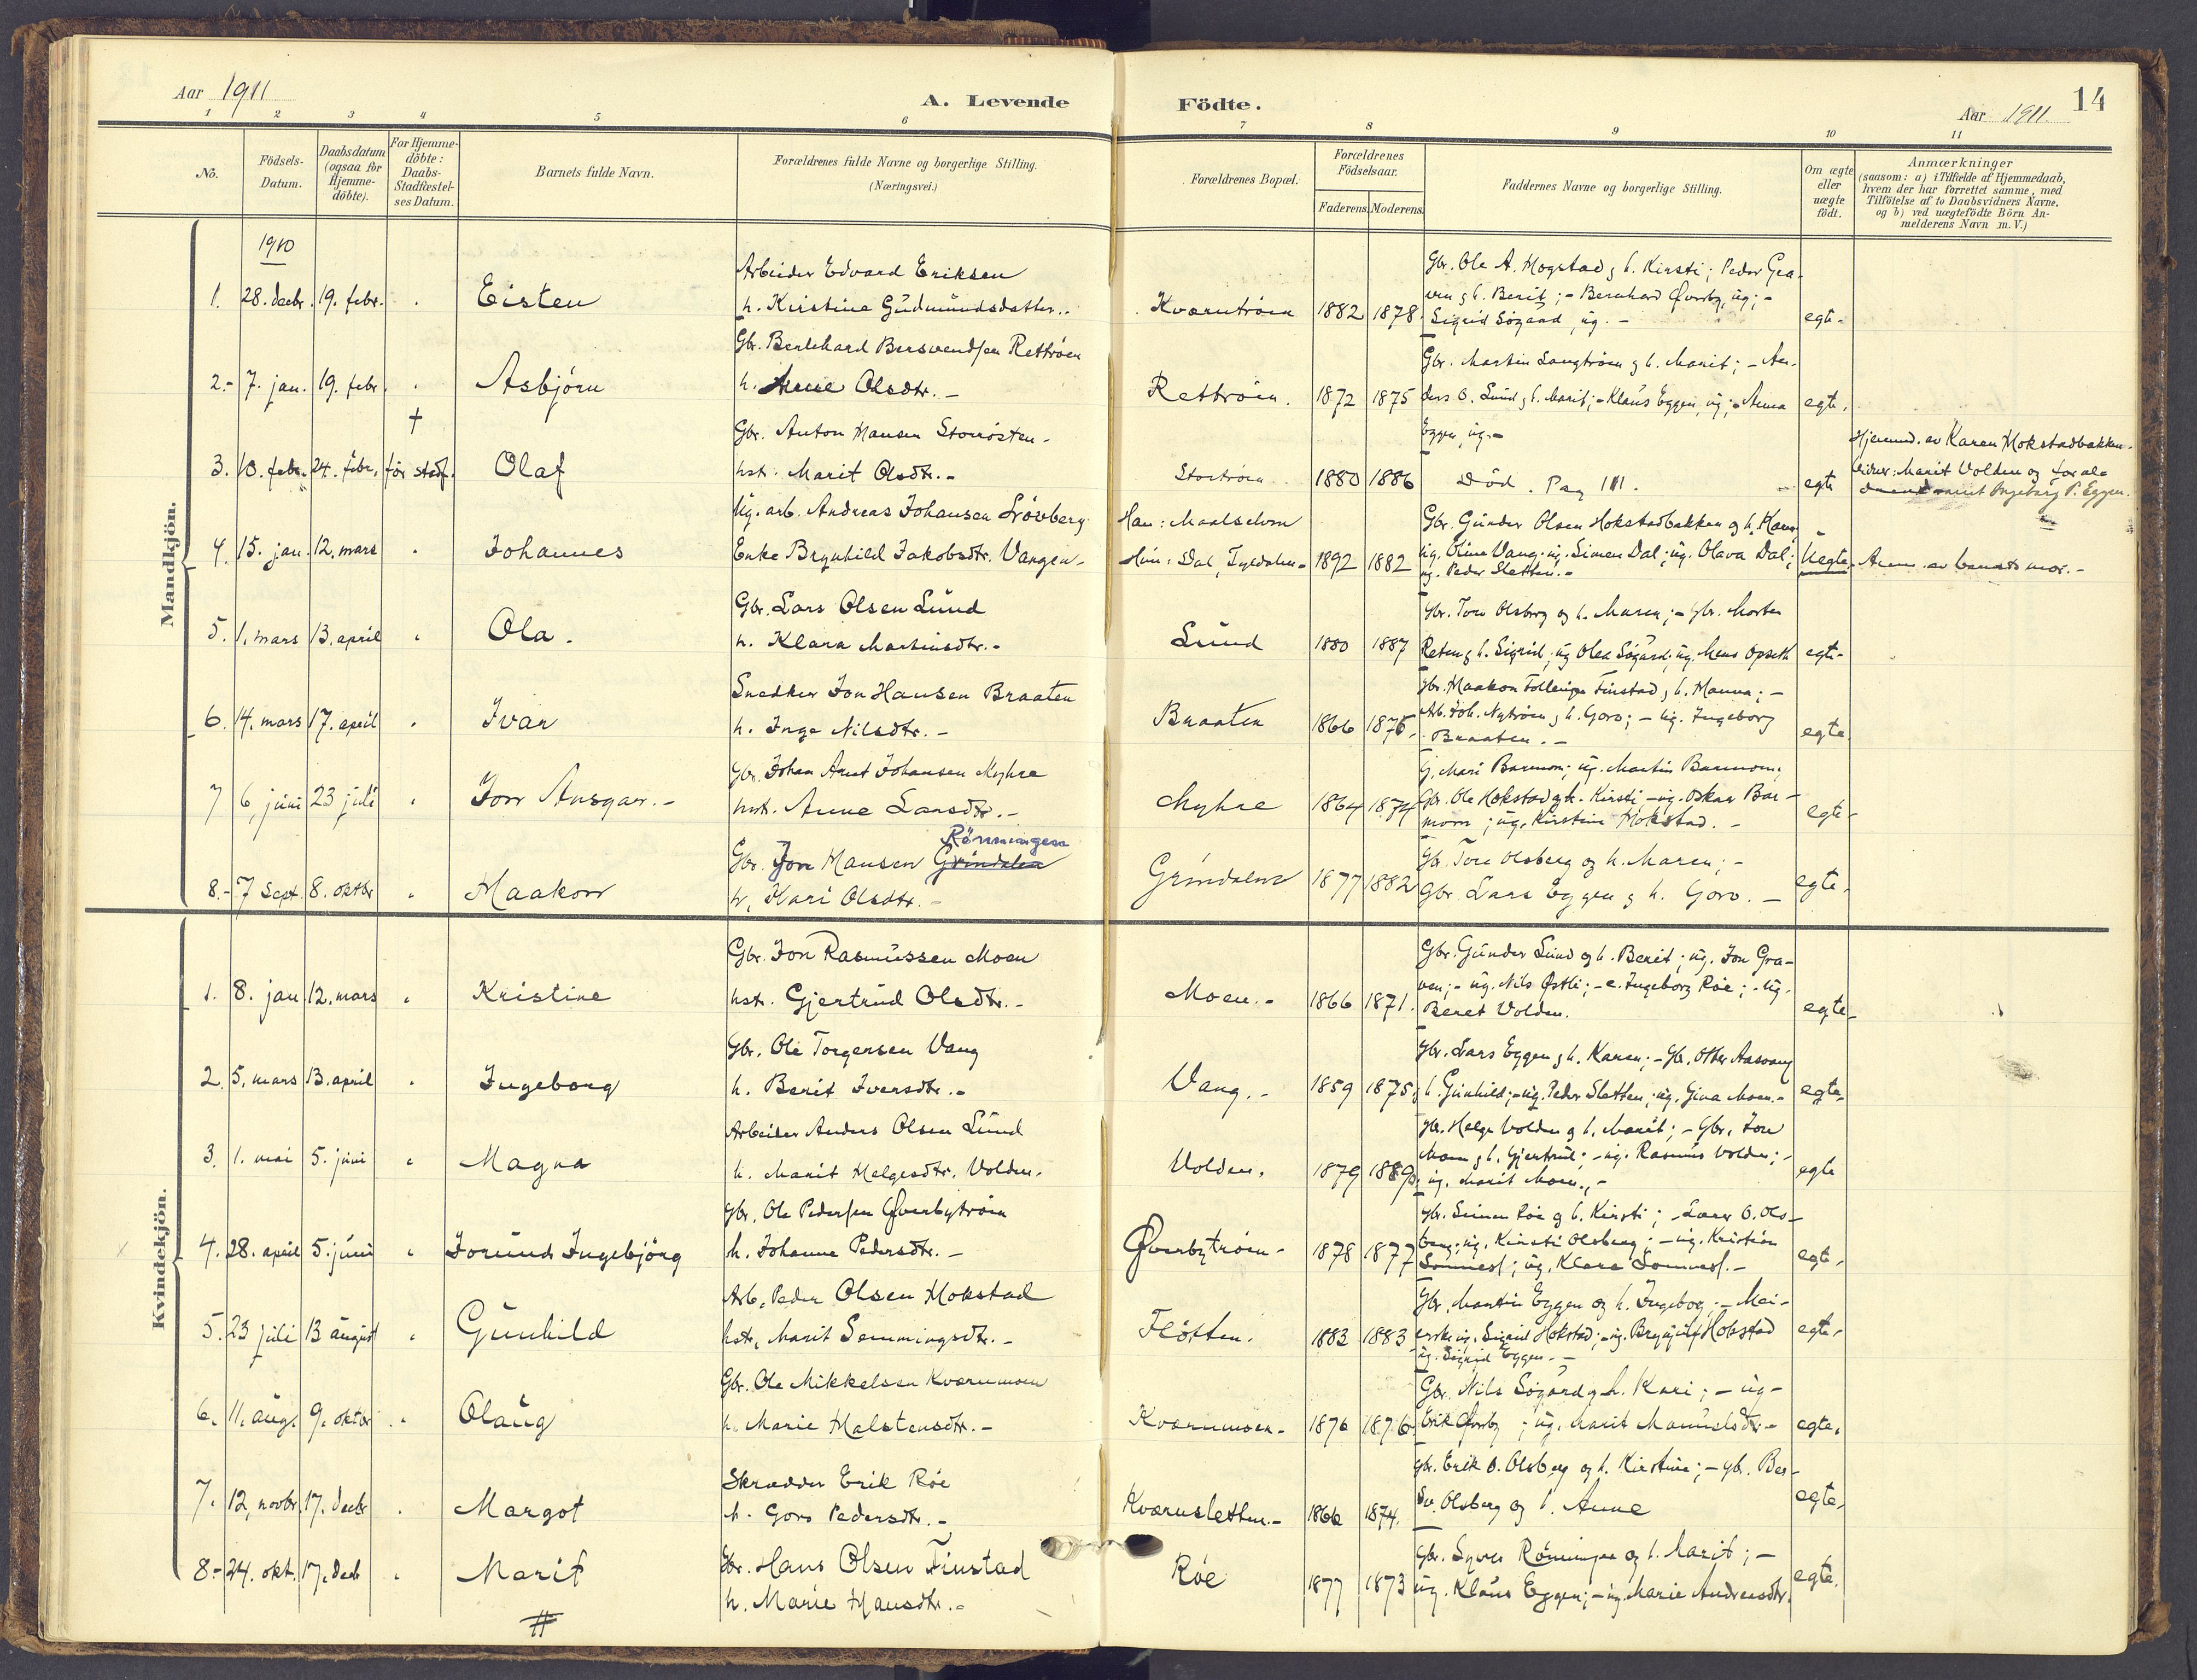 Aar 1911
A. Levende
Födte.
Aar 1911.
14
1 2 3 4 5 6 7 8 9 10 11
No.
Födsels-
Datum.
Daabsdatum
(ogsaa for
Hjemme-
döbte).
For Hjemme-
döbte:
Daabs-
Stadfæstel-
ses Datum.
Barnets fulde Navn.
Forældrenes fulde Navne og borgerlige Stilling.
(Næringsvei.)
Forældrenes Bopæl.
Forældrenes
Födselsaar.
Faderens. Moderens.
Faddernes Navne og borgerlige Stilling.
Om ægte
eller
uægte
födt.
Anmærkninger
(saasom: a) i Tilfælde af Hjemmedaab,
hvem der har forrettet samme, med
Tilföielse af to Daabsvidners Navne,
og b) ved uægtefödte Börn An-
melderens Navn m. V.)
Mandkjön.
1910
Arbeider Edvard Eriksen
Gbr. Ole A. Mogstad og h. Kirsti; Peder Gra-
1. 28. decbr. 19. febr. Eisten
h. Kristine Gudmundsdatter.
Kværntröen 1882 1878
ven og h. Berit; - Bernhard Øverby, ug; -
Sigrid Sögaard, ug. -
egte.
Gbr. Bernhard Bersvendsen Rettröen
Gbr. Martin Langtröen og h. Marit; - An-
2.- 7. jan. 19. febr. Asbjörn
h. Anne Olsdtr. -
Rettröen. 1872 1875
ders O. Lund og h. Marit; - Klaus Eggen, ug; - Anna
egte.
Eggen, ug. -
†
Gbr. Anton Hansen Stor
3. 10. febr. 24. febr. för stadf. Olaf
hst. Marit Olsdtr. -
Stortröen 1880 1886
Död. Pag 111.
egte
Hjemmed. av Karen Hokstadbakken.
Vidner: Marit Volden og
Ingeborg P. Eggen.
Ug. arb. Andreas Johansen Lövberg
Han: Maalselven
Gbr. Gunder Olsen Hokstadbakken og h. Karen
4. 15. jan. 12. mars Johannes
Enke Brynhild Jakobsdtr. Vangen.
Hun: Dal, Tyldalen. 1892 1882
ug. Vang. ug. Simen Dal; ug. Olava Dal;
ug. Peder Sletten. -
Uegte.
Anm. av barnets mor. -
Gbr. Lars Olsen Lund
Gbr. Tore Olsberg og h. Maren; - gbr. Morten
5. 1. mars 13. april Ola.
h. Klara Martinsdtr. -
Lund 1880 1887
Reten og h. Sigrid; ug Olea Sögard; ug. Mens Opseth
egte.
Snedker Jon Hansen Braaten
Gbr. Haakon Finstad og h. Hanna; -
6. 14. mars 17. april Ivar
h. Inga Nilsdtr. -
Braaten 1866 1876
Arb. Joh. Nytröen og h. Goro; - ug. Ingeborg
Braaten. -
egte.
Gbr. Johan Arnt Johansen Myhre
Mari Barmoen; ug. Martin Barmoen;
7 6, juni 23 juli Jon Ansgar. -
hst. Anne Larsdtr. -
Myhre 1864 1874
Gbr. Ole Hokstad og h. Kirsti; - ug. Oskar Bar-
moen; ug. Kirstine Hokstad. -
egte
Rönningen
Gbr. Jon Hansen Gröndalen
Gbr. Tore Olsberg og h. Maren; -
8.- 7 Sept. 8. oktbr Haakon
h. Kari Olsdtr. -
Gröndalen 1877 1882
Gbr. Lars Eggen og h. Goro. -
egte.
Kvindekjön.
Gbr. Jon Rasmussen Moen
Gbr. Gunder Lund og h. Berit; ug. Jon Gra-
1. 8. jan 12. mars Kristine
hst. Gjertrud Olsdtr. -
Moen. - 1866 1871.
ven; - ug. Nils Østli; - e. Ingeborg Röe; - ug.
Beret Volden.
egte
Gbr. Ole Torgersen Vang
Gbr. Lars Eggen og h. Karen; - Gbr. Otter Aasvang
2. 5. mars 13. april Ingeborg
h. Berit Iversdtr. -
Vang. - 1859 1875
og h. Gunhild; - ug. Peder Sletten; ug. Gina Moen. -
egte.
Arbeider Anders Olsen Lund
Gbr. Helge Volden og h. Marit; - Gbr. Jon
3. 1. mai 5. juni Magna
h. Marit Helgesdtr. Volden.
Volden. 1879 1889
Moen og h. Gjertrud; - ug. Rasmus Volden; -
ug. Marit Moen. -
egte
Gbr. Ole Pedersen Øverbytröen
Gbr. Simen Röe og h. Kirsti; - Lærer O. Ols-
4. 28. april 5. juni Jorund Ingebjörg
h. Johanne Pedersdtr. -
Øverbytröen - 1878 1877
berg; ug. Kirsti Olsberg; - ug. Kristian
; ug. Klara
egte.
Arb. Peder Olsen Hokstad
Gbr. Martin Eggen og h. Ingebog; - Mei-
5. 23 juli 13 august Gunhild
hst. Marit Semmingsdtr. -
Flötten. 1883 1883
erske ug. Sigrid Hokstad; - ug. Brynjulf Hokstad
ug. Sigrid Eggen. -
egte.
Gbr. Ole Mikkelsen Kværnmoen
Gbr. Nils Sögård og h. Kari; - ug -
6. 11. aug. 9. oktbr Olaug
h. Marie Halstensdtr. -
Kværnmoen - 1876 1876
Erik Øverby; ug. Marit Manuelsdtr. -
egte.
Skrædder Erik Röe
Gbr. Erik O. Olsberg og h. Kirstine; - gb. Ber-
7. 12. novbr. 17. decbr Margot
h. Goro Pedersdtr. -
Kværnsletten. - 1866 1874.
sv. Olsberg og h. Anne
egte.
Gbr. Hans Olsen Finstad
Gbr. Syver Rönningen og h. Marit; -
8.- 24. okt. 17. decb Marit
h. Marie Hansdtr. -
Röe 1877 1873
ug. Klaus Eggen; - ug. Marie Andreasdtr.
egte.